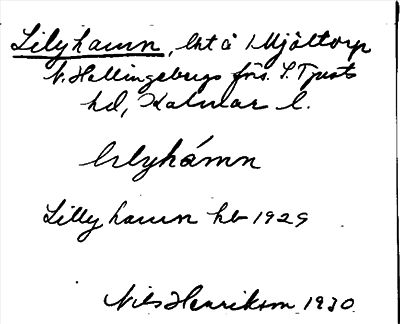 Lilyhamn, lht å Mjöltorp
V. Hellingebergs förs. S. Tjusts
hd, Kalmar l.
lilyhámn
Lillyhamn hb 1929
Nils Henrikson 1930